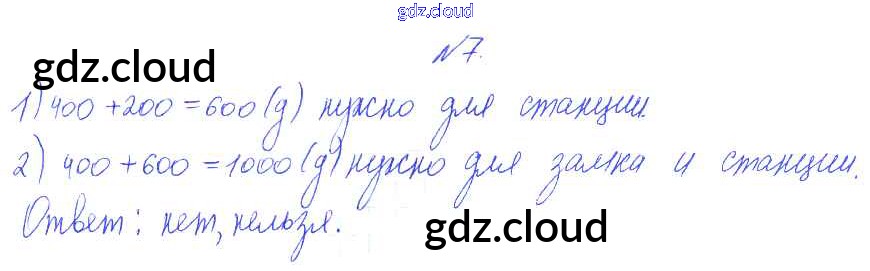 gdz.cloud
№7.
gdz.cloud
1) 400 + 200 = 600 (д) нужно для станции.
2) 400 + 600 = 1000 (д) нужно для замка и станции.
Ответ: нет, нельзя.
gdz.cloud